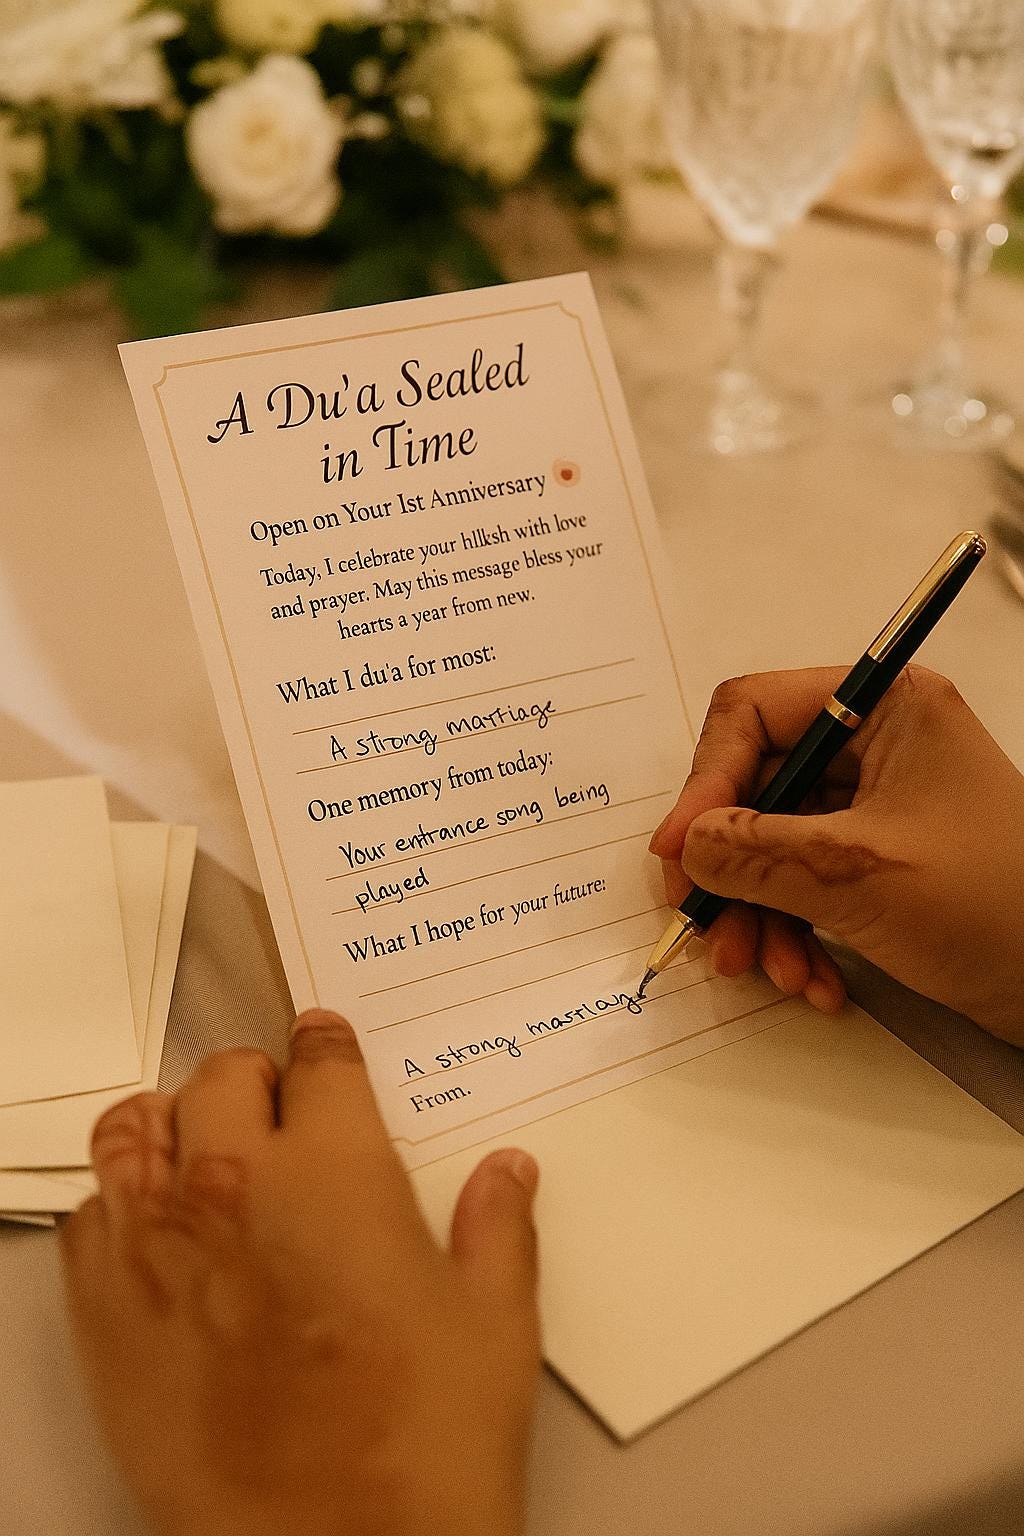 A Du'a Sealed
in Time
Open on Your 1st Anniversary
Today, I celebrate your hllksh with love
and prayer. May this message bless your
hearts a year from new.
What I du'a for most:
A strong marriage
One memory from today:
Your entrance song being
played
What I hope for your future:
A strong marriag
From.